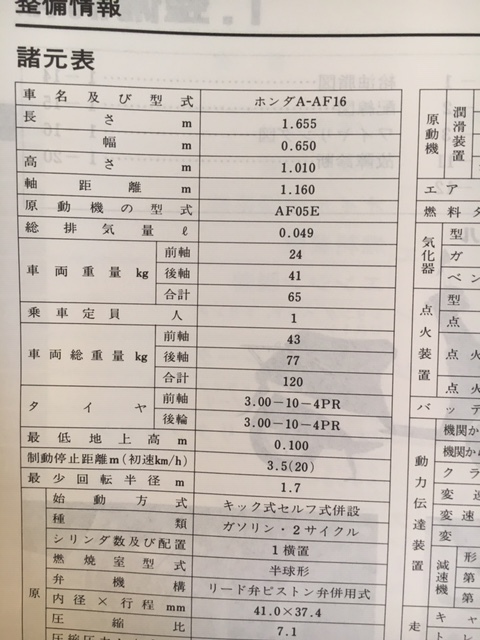 整備情報
諸元表
車名及び型式 ホンダA-AF16
長さ m 1.655
幅 m 0.650
高さ m 1.010
軸距離 m 1.160
原動機の型式 AF05E
総排気量 ℓ 0.049
車両重量 kg 前軸 24
後軸 41
合計 65
乗車定員 人 1
車両総重量 kg 前軸 43
後軸 77
合計 120
タイヤ 前軸 3.00-10-4PR
後輪 3.00-10-4PR
最低地上高 m 0.100
制動停止距離m(初速km/h) 3.5(20)
最少回転半径 m 1.7
原
始動方式 キック式セルフ式併設
種類 ガソリン・2サイクル
シリンダ数及び配置 1横置
燃焼室型式 半球形
弁機構 リード弁ピストン弁併用式
内径×行程 mm 41.0×37.4
圧縮比 7.1
原動機
潤滑装置
エア
燃料タ
気化器 型
ガ
ベン
点火装置 型
点
点火
点火
バッテ
動力伝達装置
機関か
機関から
クラ
変速
変速
変
減速機 形
第
第
走
キャ